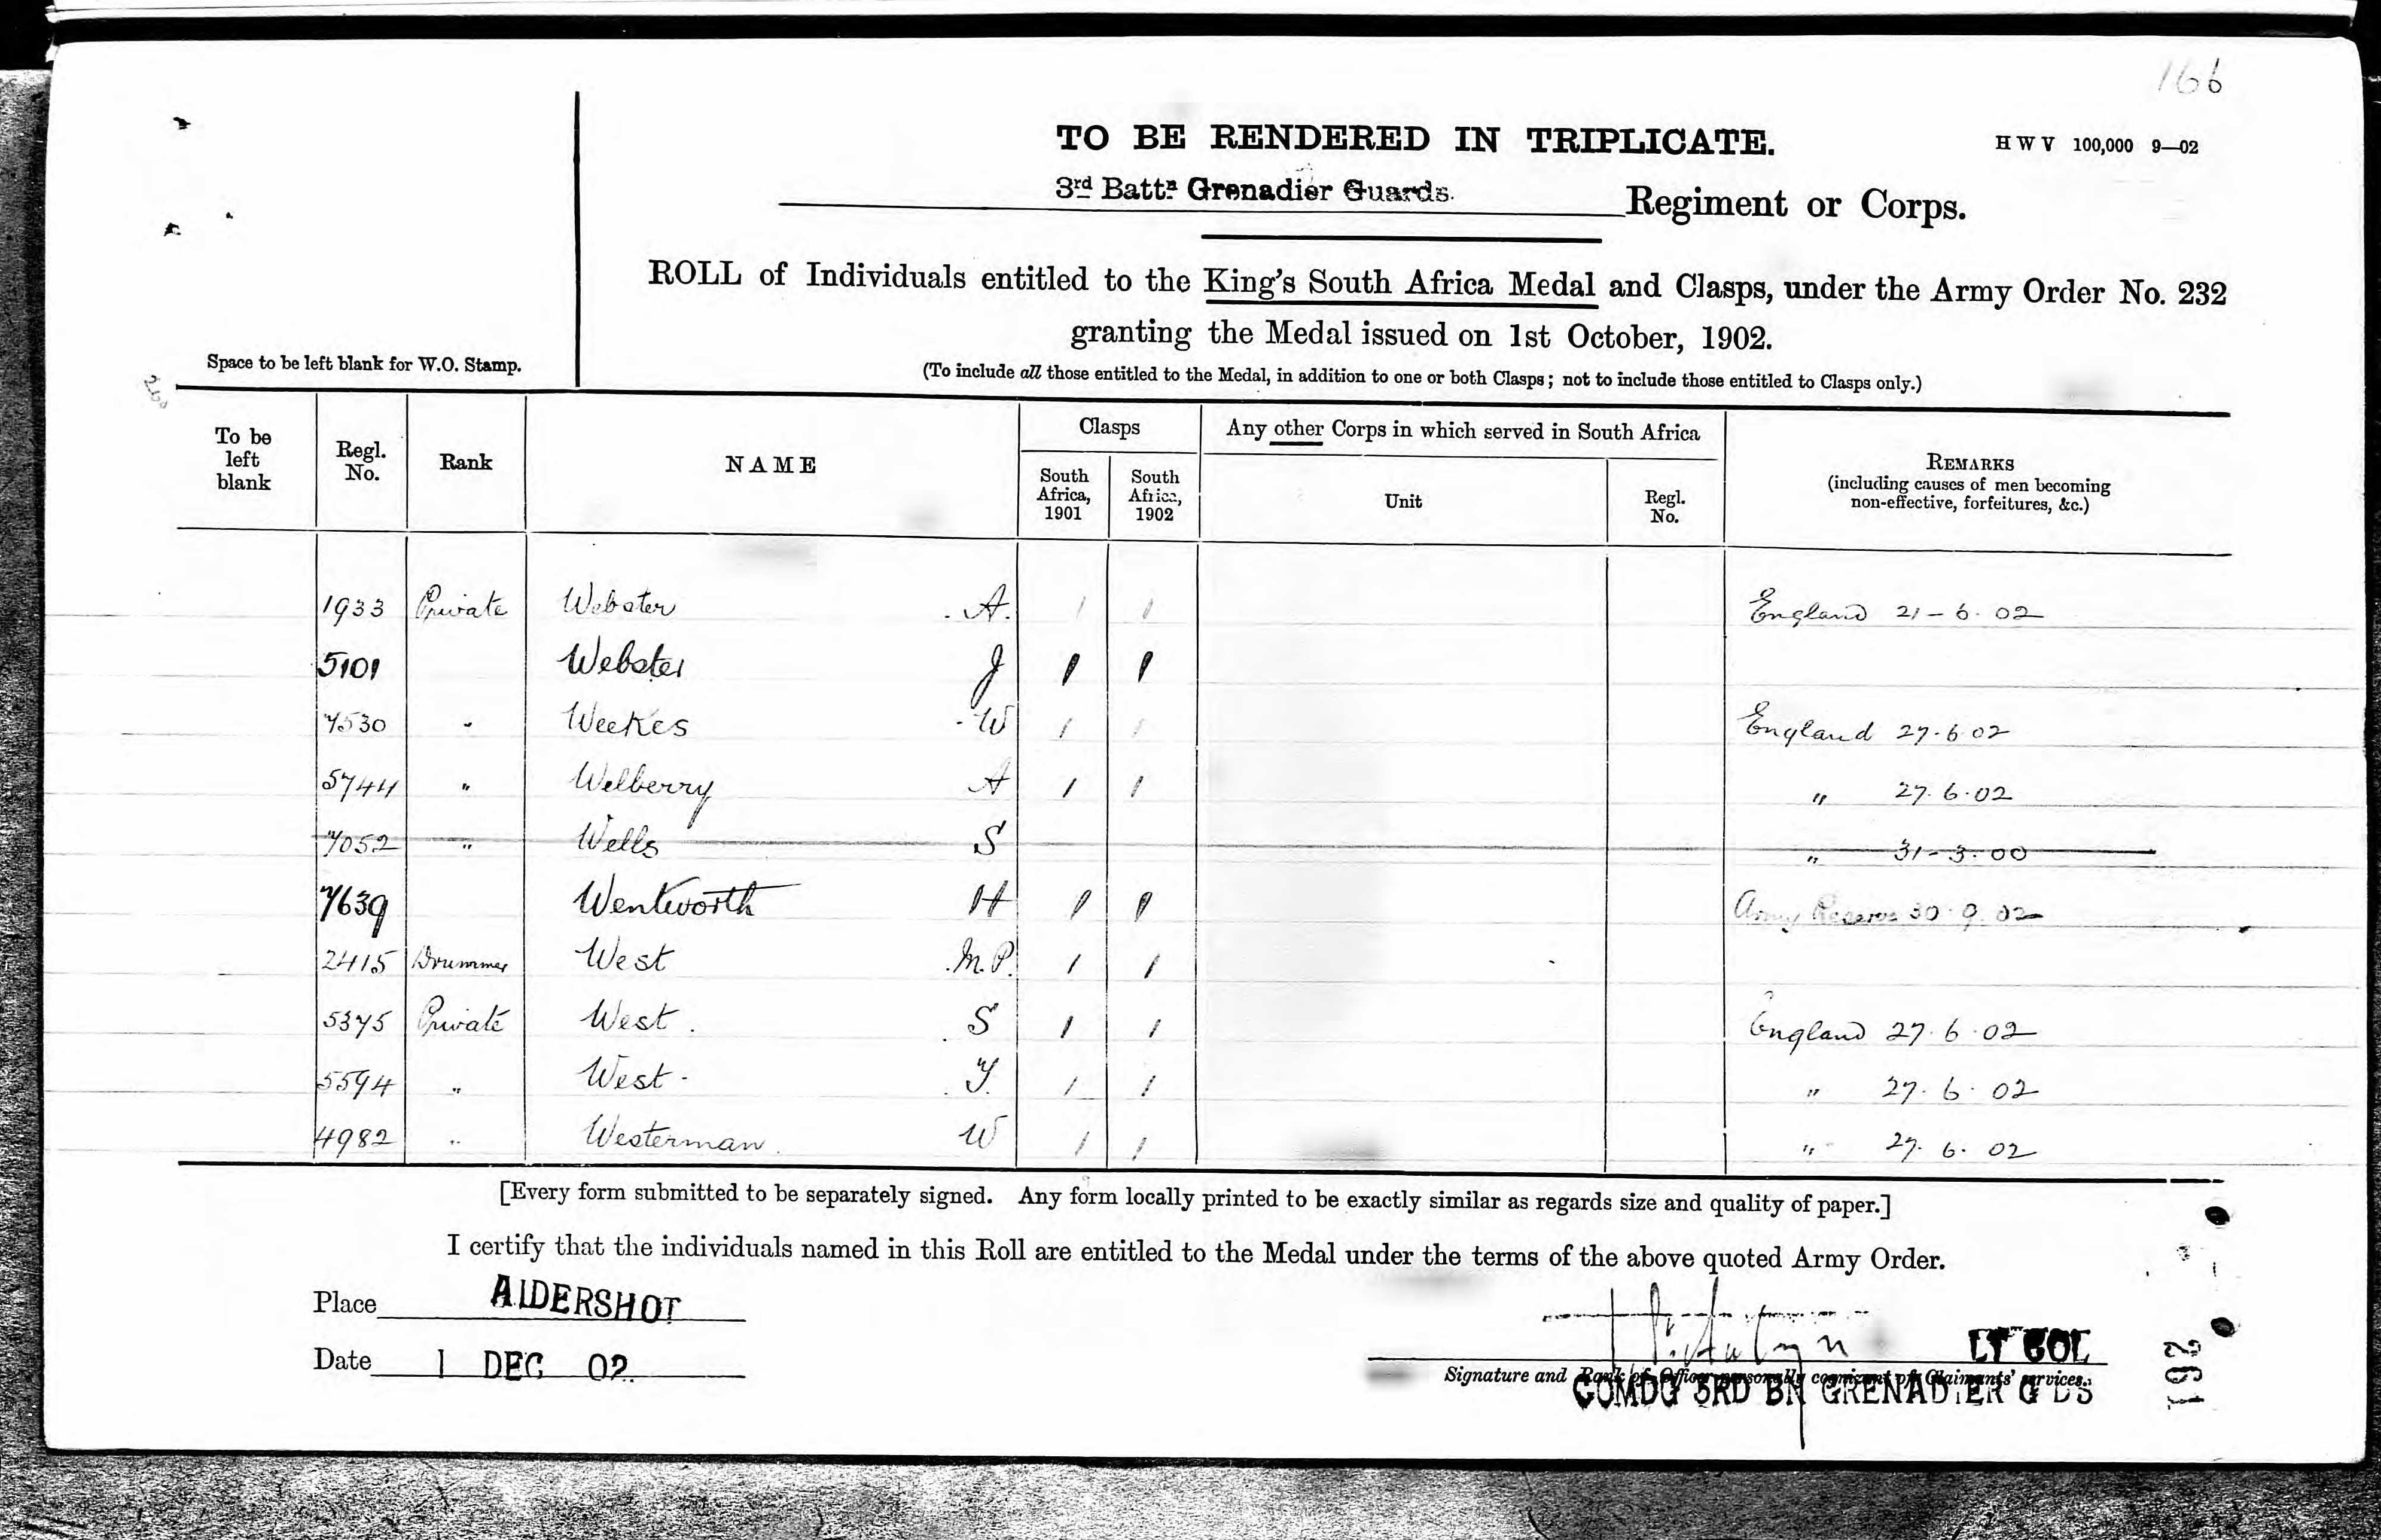 166
TO BE RENDERED IN TRIPLICATE.
H W V 100,000 9—02
3rd Battn Grenadier Guards. Regiment or Corps.
ROLL of Individuals entitled to the King's South Africa Medal and Clasps, under the Army Order No. 232
granting the Medal issued on 1st October, 1902.
Space to be left blank for W.O. Stamp.
(To include all those entitled to the Medal, in addition to one or both Clasps; not to include those entitled to Clasps only.)
260
To be left blank
Regl. No.
Rank
NAME
Clasps
South Africa, 1901
South Africa, 1902
Any other Corps in which served in South Africa
Unit
Regl. No.
REMARKS
(including causes of men becoming
non-effective, forfeitures, &c.)
1933 Private Webster A. / / England 21-6.02
5101 Webster J / /
7530 " Weekes W / / England 27.6.02
5744 " Welberry A / / " 27.6.02
7052 " Wells S " 31-3.00
7639 Wentworth H / / Army Reserve 30.9.02
2415 Drummer West M.P. / /
5375 Private West. S / / England 27.6.02
5594 " West- T. / / " 27.6.02
4982 " Westerman. W / / " 27.6.02
[Every form submitted to be separately signed. Any form locally printed to be exactly similar as regards size and quality of paper.]
I certify that the individuals named in this Roll are entitled to the Medal under the terms of the above quoted Army Order.
Place ALDERSHOT
Date 1 DEC 02.
LT COL
Signature and Rank of Officer personally cognizant of Claimants' services.
COMDG 3RD BN GRENADIER G DS
192